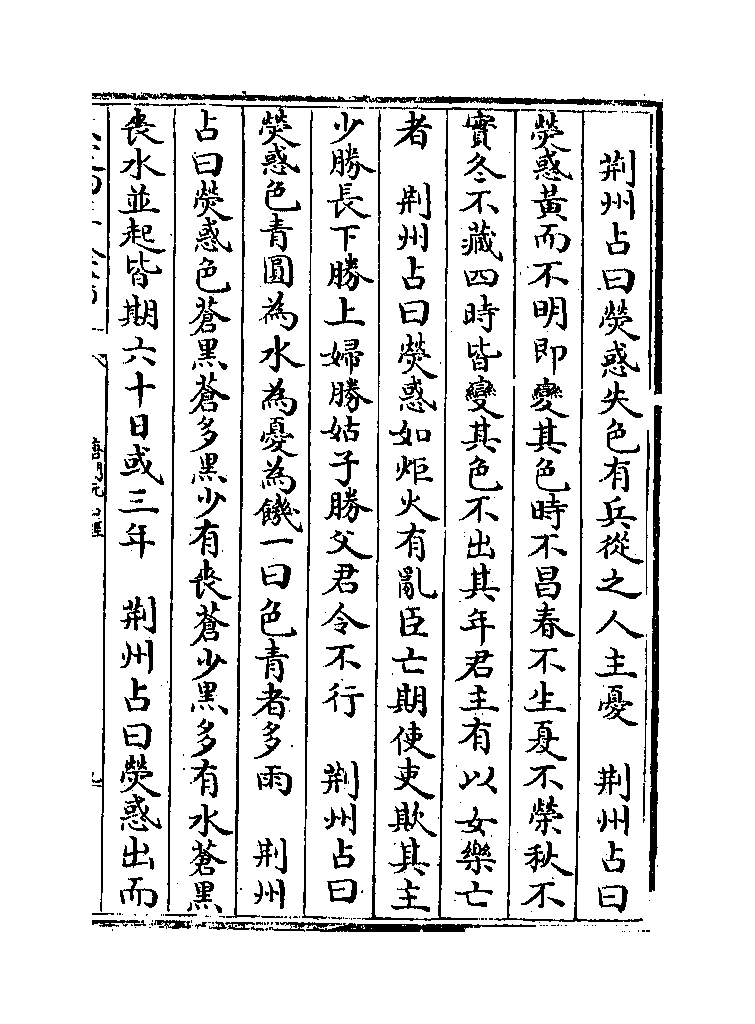 荆州占曰熒惑失色有兵從之人主憂　荆州占曰
熒惑黄而不明即變其色時不昌春不生夏不榮秋不
實冬不藏四時皆變其色不出其年君主有以女樂亡
者　荆州占曰熒惑如炬火有亂臣亡期使吏欺其主
少勝長下勝上婦勝姑子勝父君令不行　荆州占曰
熒惑色青圓為水為憂為饑一曰色青者多雨　荆州
占曰熒惑色蒼黑蒼多黑少有喪蒼少黑多有水蒼黑
喪水並起皆期六十日或三年　荆州占曰熒惑出而